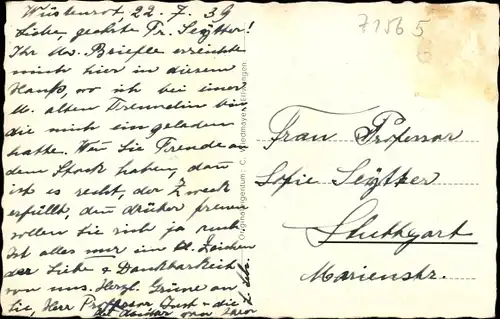 Wüstenrot 22. 7. 39
Liebe, geehrte Fr. Seytter!
Ihr lb. Briefle erreichte
mich hier in diesem
Hauß, wo ich bei einer
lb. alten Freundin bin
die mich eingeladen
hatte. Wen Sie Freude an
dem Stock haben, dan
ist es recht, der Zweck
erfüllt, den drüber freuen
sollen Sie sich ja auch
Ist alles nur ein kl. Zeichen
der Liebe & Dankbarkeit
von uns. Herzl. Grüße an
Sie, Herr Professor
71565
Frau Professor
Sofie Seytter
Stuttgart
Marienstr.